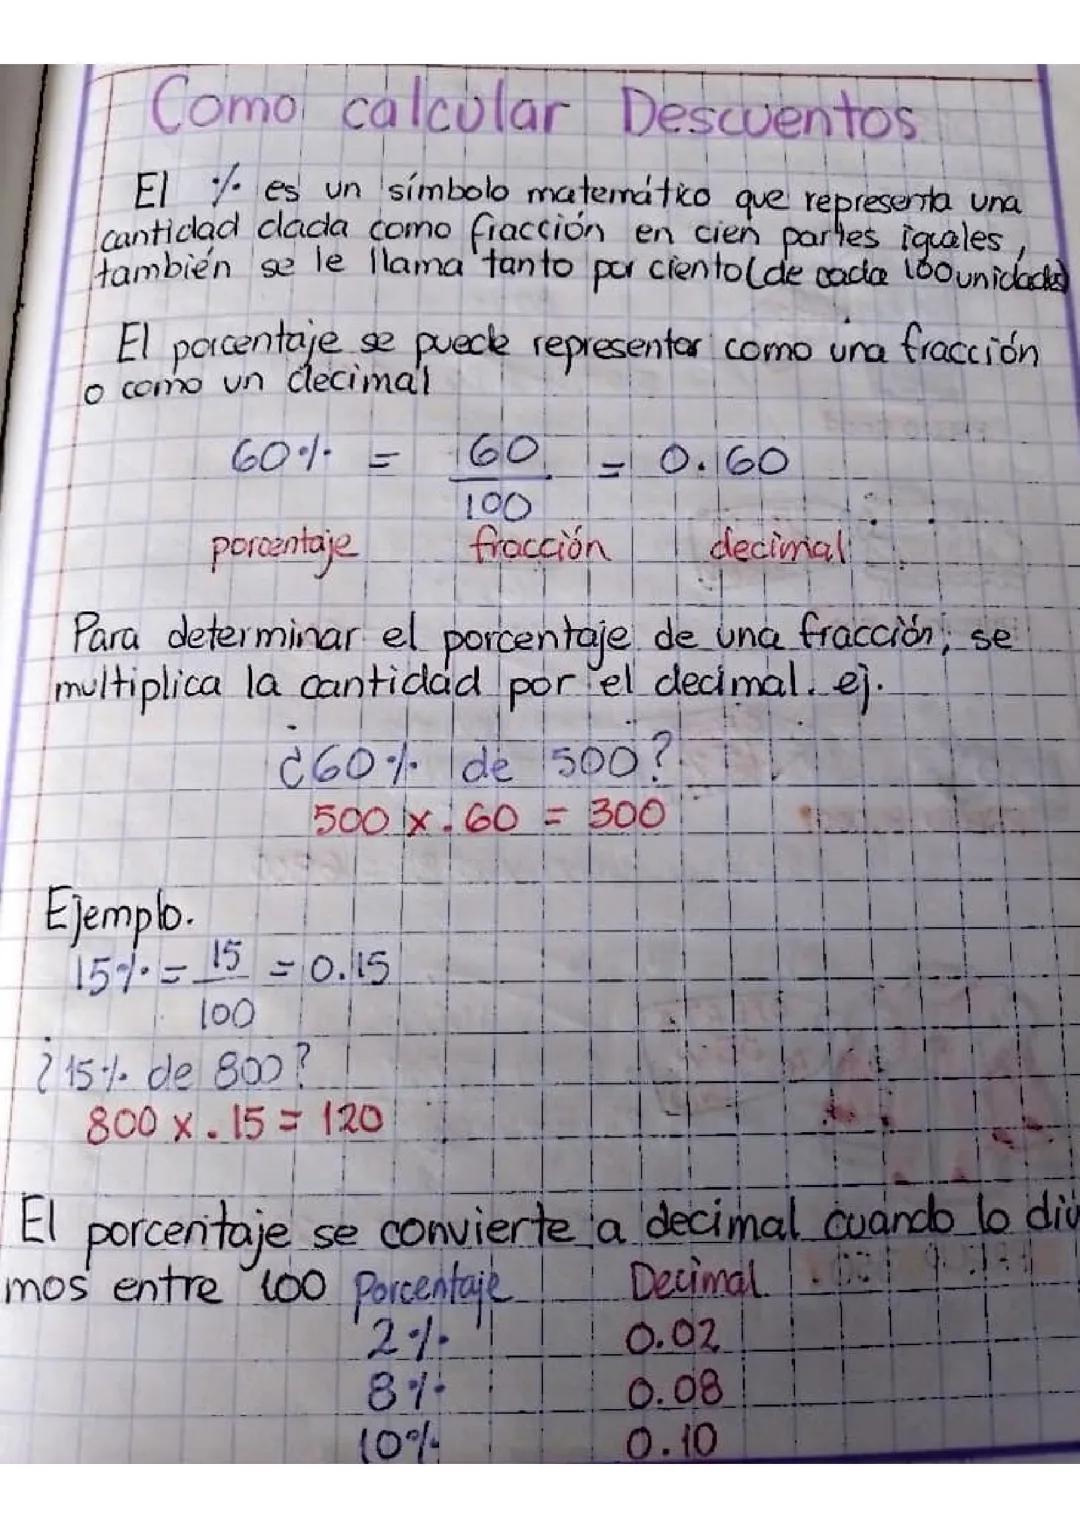 Como calcular Descuentos
El % es un símbolo matemático que representa una
cantidad dada como fracción en cien partes iguales,
también se le llama tanto por ciento (de cada 100 unidades)
El porcentaje se puede representar como una fracción
o como un decimal
60% = 60/100 = 0.60
porcentaje fracción decimal
Para determinar el porcentaje de una fracción, se
multiplica la cantidad por el decimal. ej.
¿60% de 500?
500 x .60 = 300
Ejemplo.
15% = 15/100 = 0.15
¿15% de 800?
800 x .15 = 120
El porcentaje se convierte a decimal cuando lo divi
mos entre 100 Porcentaje Decimal
2% 0.02
8% 0.08
10% 0.10